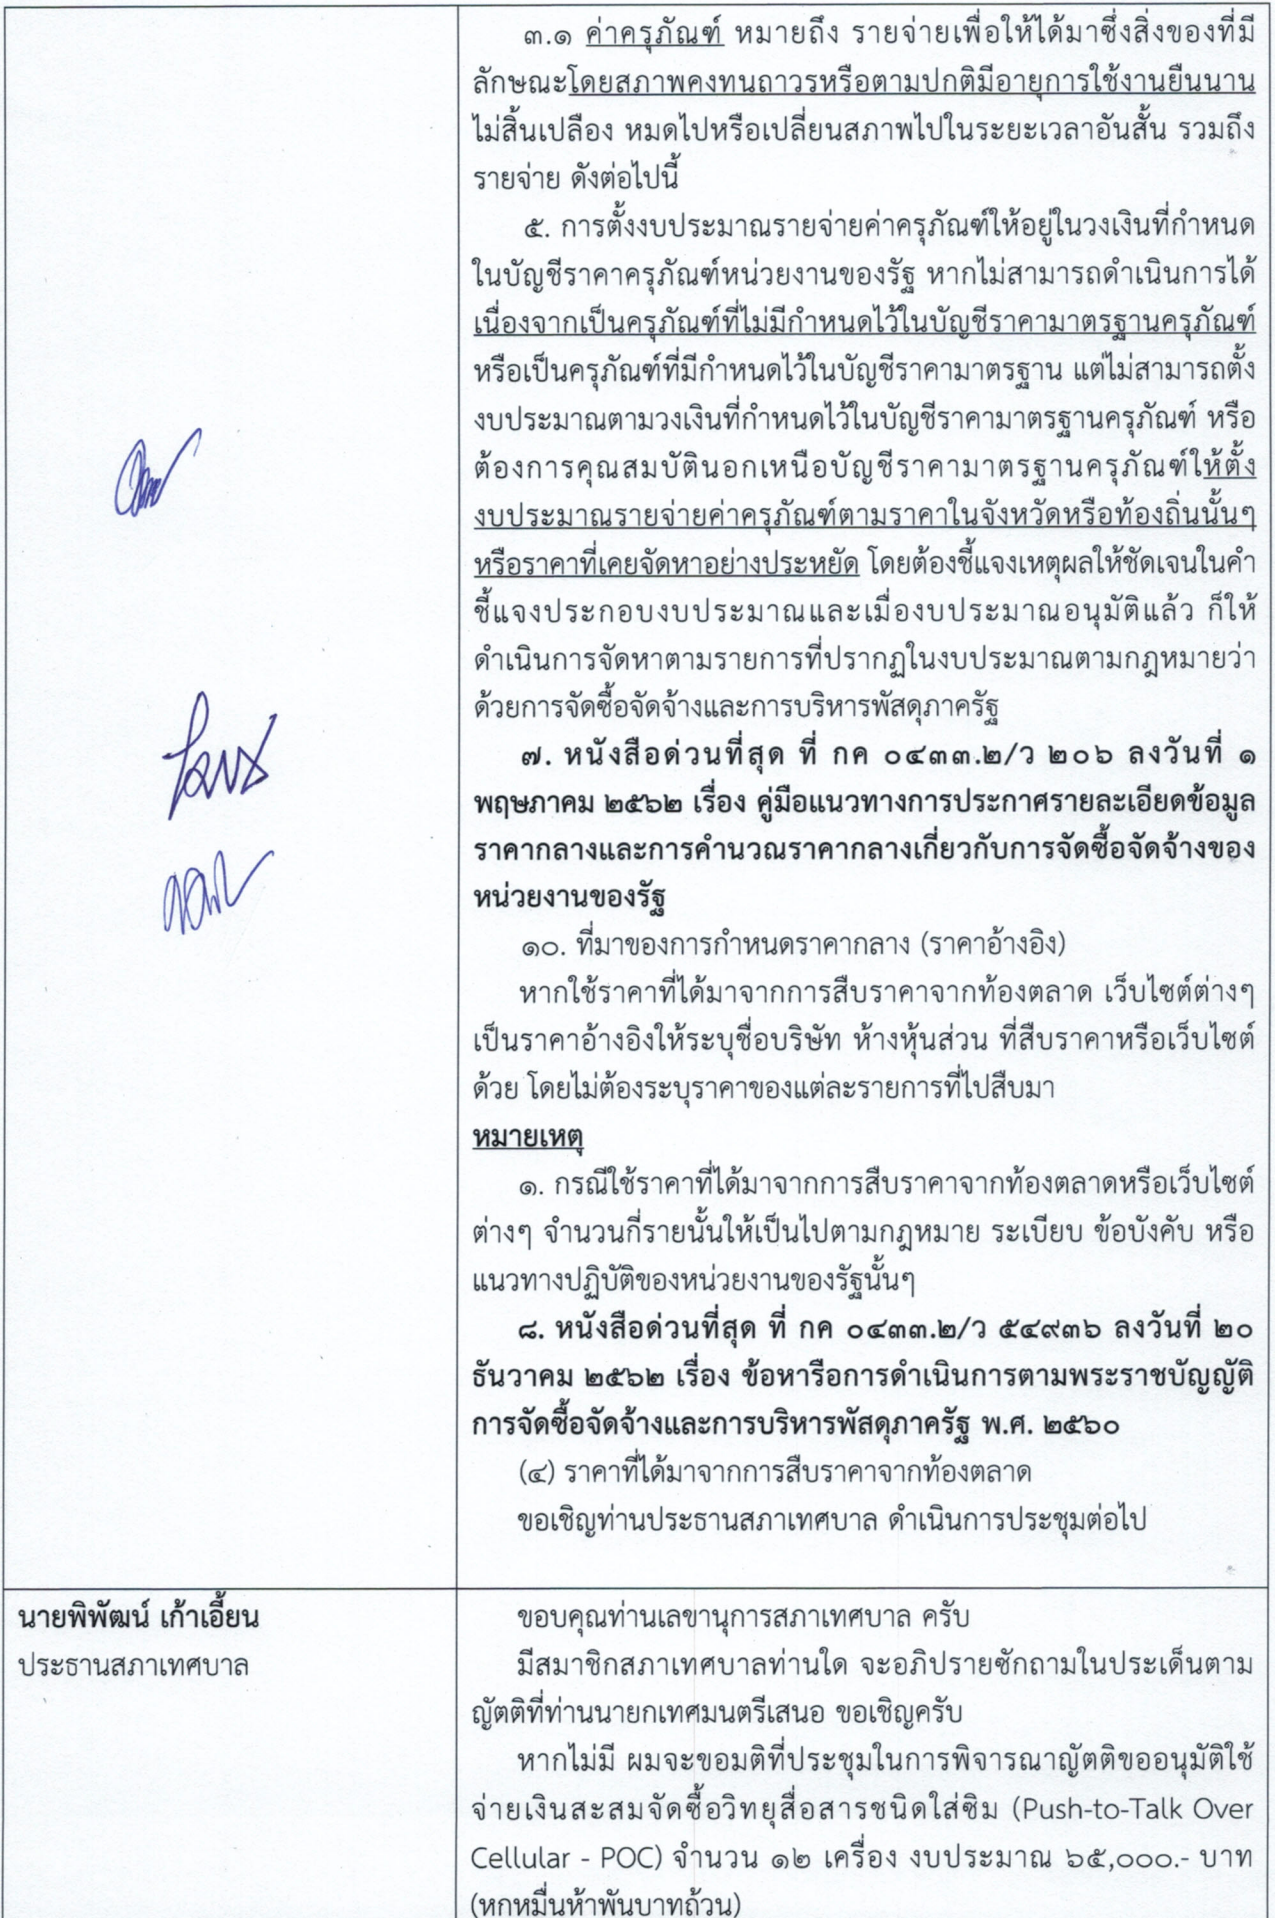 ๓.๑ ค่าครุภัณฑ์ หมายถึง รายจ่ายเพื่อให้ได้มาซึ่งสิ่งของที่มี
ลักษณะโดยสภาพคงทนถาวรหรือตามปกติมีอายุการใช้งานยืนนาน
ไม่สิ้นเปลือง หมดไปหรือเปลี่ยนสภาพไปในระยะเวลาอันสั้น รวมถึง
รายจ่าย ดังต่อไปนี้
๕. การตั้งงบประมาณรายจ่ายค่าครุภัณฑ์ให้อยู่ในวงเงินที่กำหนด
ในบัญชีราคาครุภัณฑ์หน่วยงานของรัฐ หากไม่สามารถดำเนินการได้
เนื่องจากเป็นครุภัณฑ์ที่ไม่มีกำหนดไว้ในบัญชีราคามาตรฐานครุภัณฑ์
หรือเป็นครุภัณฑ์ที่มีกำหนดไว้ในบัญชีราคามาตรฐาน แต่ไม่สามารถตั้ง
งบประมาณตามวงเงินที่กำหนดไว้ในบัญชีราคามาตรฐานครุภัณฑ์ หรือ
ต้องการคุณสมบัตินอกเหนือบัญชีราคามาตรฐานครุภัณฑ์ให้ตั้ง
งบประมาณรายจ่ายค่าครุภัณฑ์ตามราคาในจังหวัดหรือท้องถิ่นนั้นๆ
หรือราคาที่เคยจัดหาอย่างประหยัด โดยต้องชี้แจงเหตุผลให้ชัดเจนในคำ
ชี้แจงประกอบงบประมาณและเมื่องบประมาณอนุมัติแล้ว ก็ให้
ดำเนินการจัดหาตามรายการที่ปรากฏในงบประมาณตามกฎหมายว่า
ด้วยการจัดซื้อจัดจ้างและการบริหารพัสดุภาครัฐ
๗. หนังสือด่วนที่สุด ที่ กค ๐๔๓๓.๒/ว ๒๐๖ ลงวันที่ ๑
พฤษภาคม ๒๕๖๒ เรื่อง คู่มือแนวทางการประกาศรายละเอียดข้อมูล
ราคากลางและการคำนวณราคากลางเกี่ยวกับการจัดซื้อจัดจ้างของ
หน่วยงานของรัฐ
๑๐. ที่มาของการกำหนดราคากลาง (ราคาอ้างอิง)
หากใช้ราคาที่ได้มาจากการสืบราคาจากท้องตลาด เว็บไซต์ต่างๆ
เป็นราคาอ้างอิงให้ระบุชื่อบริษัท ห้างหุ้นส่วน ที่สืบราคาหรือเว็บไซต์
ด้วย โดยไม่ต้องระบุราคาของแต่ละรายการที่ไปสืบมา
หมายเหตุ
๑. กรณีใช้ราคาที่ได้มาจากการสืบราคาจากท้องตลาดหรือเว็บไซต์
ต่างๆ จำนวนกี่รายนั้นให้เป็นไปตามกฎหมาย ระเบียบ ข้อบังคับ หรือ
แนวทางปฏิบัติของหน่วยงานของรัฐนั้นๆ
๘. หนังสือด่วนที่สุด ที่ กค ๐๔๓๓.๒/ว ๕๔๙๓๖ ลงวันที่ ๒๐
ธันวาคม ๒๕๖๒ เรื่อง ข้อหารือการดำเนินการตามพระราชบัญญัติ
การจัดซื้อจัดจ้างและการบริหารพัสดุภาครัฐ พ.ศ. ๒๕๖๐
(๔) ราคาที่ได้มาจากการสืบราคาจากท้องตลาด
ขอเชิญท่านประธานสภาเทศบาล ดำเนินการประชุมต่อไป
นายพิพัฒน์ เก้าเอี้ยน
ประธานสภาเทศบาล
ขอบคุณท่านเลขานุการสภาเทศบาล ครับ
มีสมาชิกสภาเทศบาลท่านใด จะอภิปรายซักถามในประเด็นตาม
ญัตติที่ท่านนายกเทศมนตรีเสนอ ขอเชิญครับ
หากไม่มี ผมจะขอมติที่ประชุมในการพิจารณาญัตติขออนุมัติใช้
จ่ายเงินสะสมจัดซื้อวิทยุสื่อสารชนิดใส่ซิม (Push-to-Talk Over
Cellular - POC) จำนวน ๑๒ เครื่อง งบประมาณ ๖๕,๐๐๐.- บาท
(หกหมื่นห้าพันบาทถ้วน)